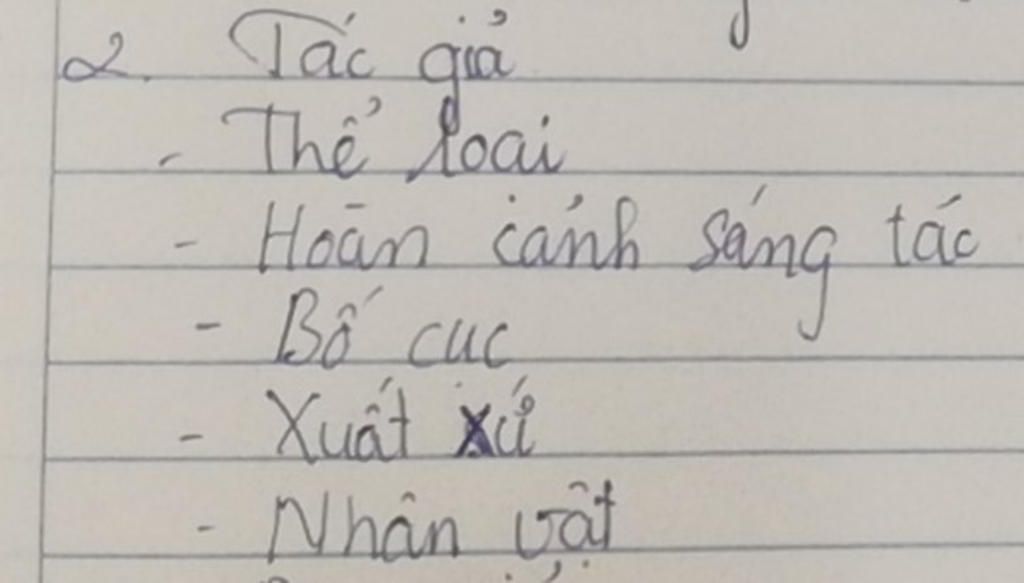 2. Tác giả
- Thể loại
- Hoàn cảnh sáng tác
- Bố cục
- Xuất xứ
- Nhân vật